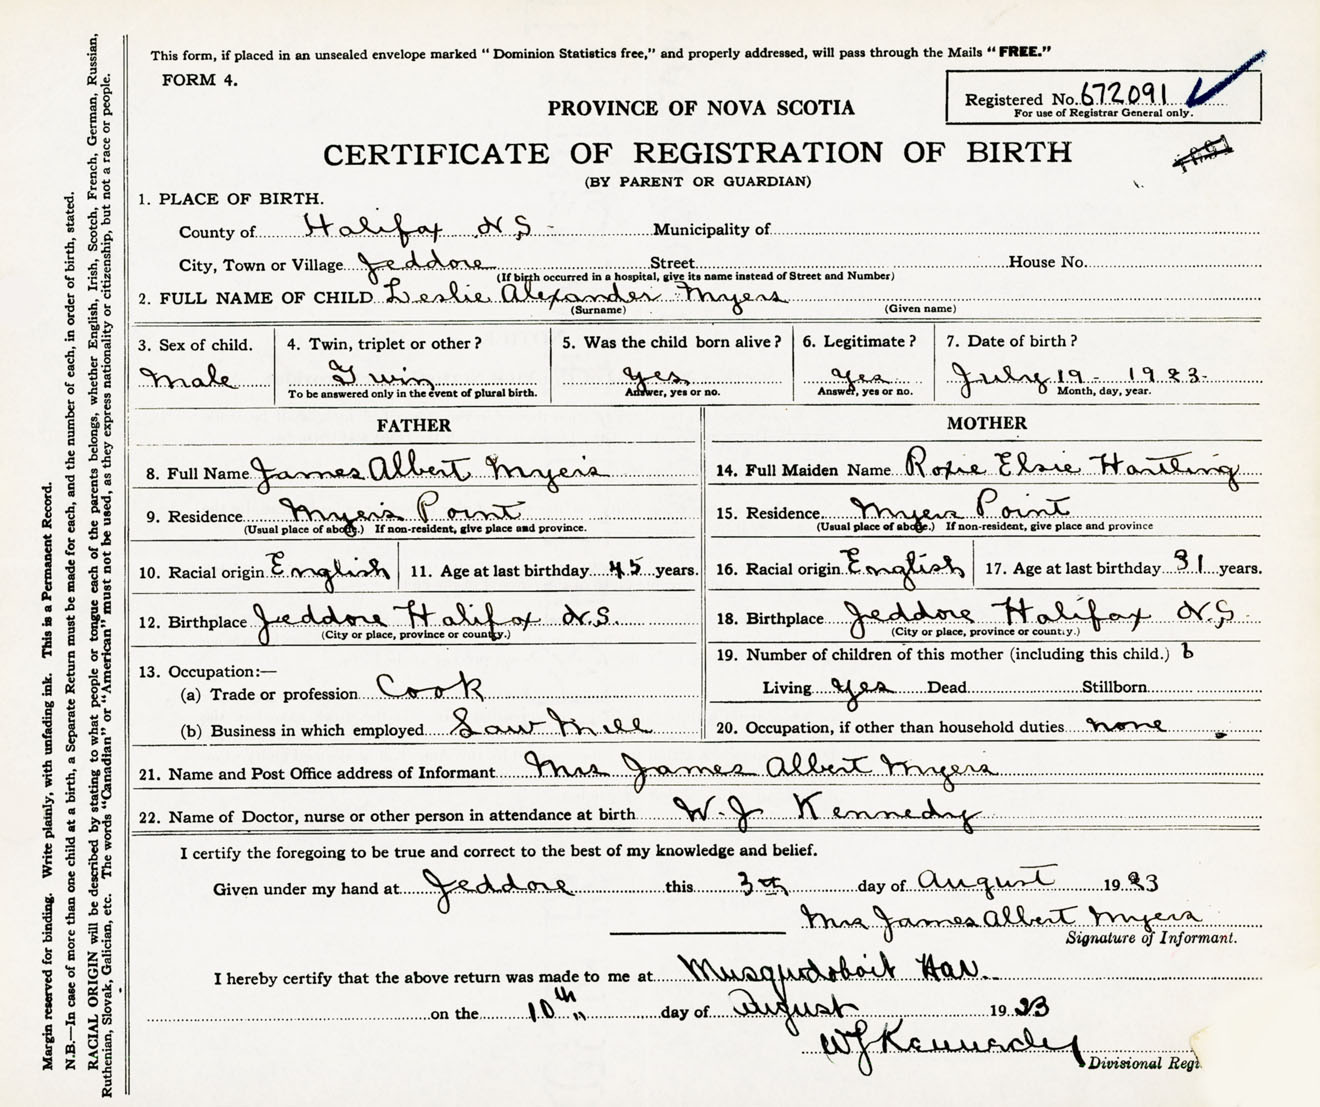 This form, if placed in an unsealed envelope marked "Dominion Statistics free," and properly addressed, will pass through the Mails "FREE."
FORM 4.
Registered No. 672091
For use of Registrar General only.
PROVINCE OF NOVA SCOTIA
CERTIFICATE OF REGISTRATION OF BIRTH
(BY PARENT OR GUARDIAN)
1. PLACE OF BIRTH.
County of Halifax N.S. Municipality of
City, Town or Village Jeddore Street House No.
(If birth occurred in a hospital, give its name instead of Street and Number)
2. FULL NAME OF CHILD Leslie Alexander Myers
(Surname) (Given name)
3. Sex of child. 4. Twin, triplet or other? 5. Was the child born alive? 6. Legitimate? 7. Date of birth?
Male Twin yes Yes July 19 - 1923-
To be answered only in the event of plural birth. Answer, yes or no. Answer, yes or no. Month, day, year.
FATHER
8. Full Name James Albert Myers
9. Residence Myers Point
(Usual place of abode.) If non-resident, give place and province.
10. Racial origin English 11. Age at last birthday 45 years.
12. Birthplace Jeddore Halifax N.S.
(City or place, province or country.)
13. Occupation:—
(a) Trade or profession Cook
(b) Business in which employed Saw Mill
MOTHER
14. Full Maiden Name Roxie Elsie Hartling
15. Residence Myers Point
(Usual place of abode.) If non-resident, give place and province
16. Racial origin English 17. Age at last birthday 31 years.
18. Birthplace Jeddore Halifax N.S.
(City or place, province or country.)
19. Number of children of this mother (including this child.) 6
Living yes Dead Stillborn
20. Occupation, if other than household duties none
21. Name and Post Office address of Informant Mrs James Albert Myers
22. Name of Doctor, nurse or other person in attendance at birth W. J Kennedy
I certify the foregoing to be true and correct to the best of my knowledge and belief.
Given under my hand at Jeddore this 3th day of August 1923
Mrs James Albert Myers
Signature of Informant.
I hereby certify that the above return was made to me at Musquodoboit Har.
on the 10th day of August 1923
WJ Kennedy
Divisional Regi
Margin reserved for binding. Write plainly, with unfading ink. This is a Permanent Record.
N.B.—In case of more than one child at a birth, a Separate Return must be made for each, and the number of each, in order of birth, stated.
RACIAL ORIGIN will be described by stating to what people or tongue each of the parents belongs, whether English, Irish, Scotch, French, German, Russian,
Ruthenian, Slovak, Galician, etc. The words "Canadian" or "American" must not be used, as they express nationality or citizenship, but not a race or people.